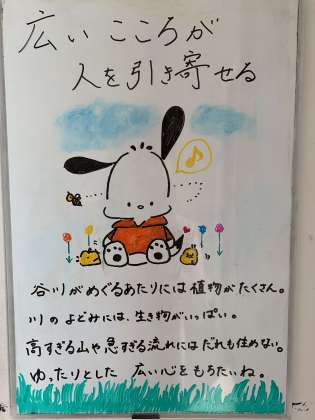 広いこころが
人を引き寄せる
谷川がめぐるあたりには植物がたくさん。
川のよどみには、生き物がいっぱい。
高すぎる山や急すぎる流れにはだれも住めない。
ゆったりとした 広い心をもちたいね。